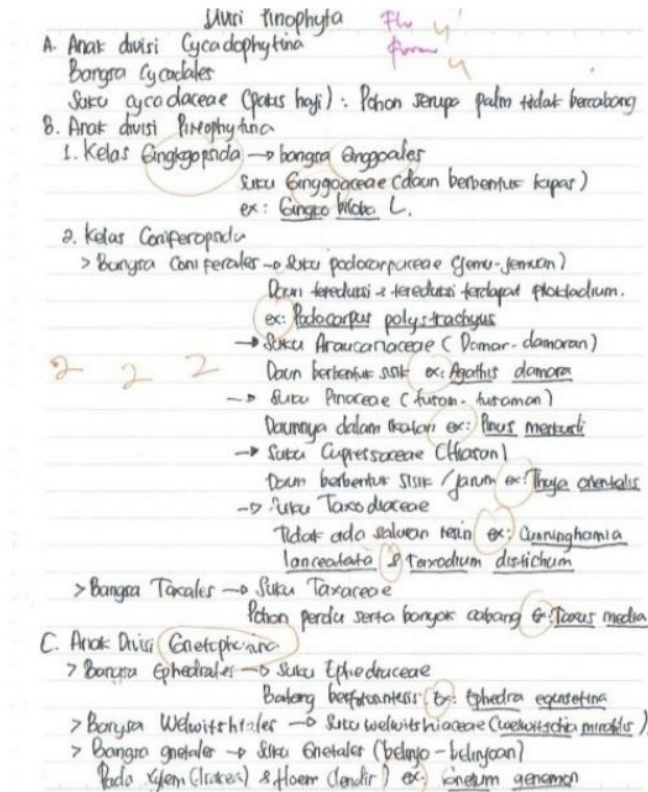 Divisi Pinophyta
A. Anak divisi Cycadophytina
Bangsa Cycadales
Suku cycadaceae (pakis haji) : Pohon serupa palm tidak bercabang
B. Anak divisi Pinophytina
1. Kelas Gingkgopsida → bangsa Ginggoales
Suku Ginggoaceae (daun berbentuk kipas)
ex: Gingko biloba L.
2. Kelas Coniferopsida
> Bangsa Coniferales → Suku podocarpaceae
Daun tereduksi & tereduksi terdapat
ex: Podocarpus polystrachyus
→ Suku Araucariaceae (Damar-damaran)
Daun berbentuk sisik ex: Agathis damara
→ Suku Pinaceae (tusam-tusaman)
Daunnya dalam ikatan ex: Pinus merkusii
→ Suku Cupressaceae
Daun berbentuk sisik / jarum ex: Thuja orientalis
→ Suku Taxodiaceae
Tidak ada saluran resin ex: Cunninghamia
lanceatata & Taxodium distichum
> Bangsa Taxales → Suku Taxaceae
Pohon perdu serta banyak cabang ex: Taxus media
C. Anak Divisi
> Bangsa Ephedrales → Suku Ephedraceae
Batang ex: Ephedra equisetina
> Bangsa Welwitshiales → Suku welwitshiaceae (welwitschia mirabilis)
> Bangsa gnetales → Suku Gnetales (belinjo-belinjoan)
Pada xylem (trakea) & floem (lendir) ex: Gnetum gnemon
2 2 2